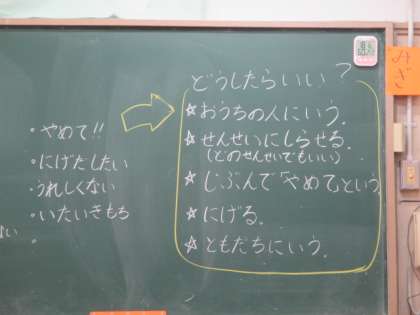 どうしたらいい?
☆おうちの人にいう。
☆せんせいにしらせる。
(どのせんせいでもいい)
☆じぶんで「やめてという
☆にげる。
☆ともだちにいう。
・やめて!!
・にげだしたい
・うれしくない
・いたいきもち
みぎ